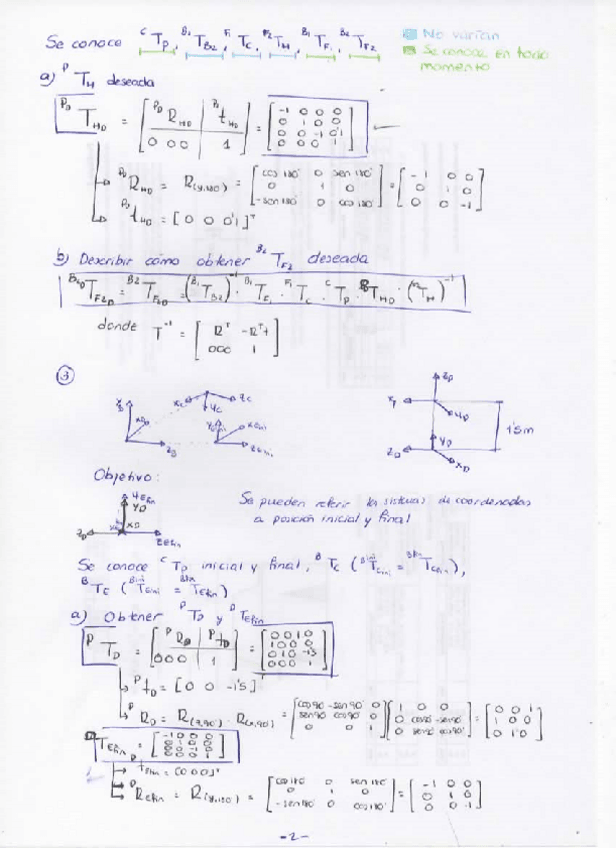 Se conoce ᶜT_P, ᴮ¹T_B2, ᶠ¹T_C, ᶠ²T_H, ᴮ¹T_F1, ᴮ²T_F2
No varían
Se conoce en todo
momento
a) ᴾT_H deseada
ᴾᴰT_HD = [ ᴾᴰR_HD | ᴾᴰt_HD ; 0 0 0 | 1 ] = [ -1 0 0 0 ; 0 1 0 0 ; 0 0 -1 0'1 ; 0 0 0 1 ]
ᴾᴰR_HD = R(y,180) = [ cos 180° 0 sen 180° ; 0 1 0 ; -sen 180° 0 cos 180° ] = [ -1 0 0 ; 0 1 0 ; 0 0 -1 ]
ᴾᴰt_HD = [0 0 0'1]ᵀ
b) Describir cómo obtener ᴮ²T_F2 deseada
ᴮ²ᴰT_F2D = ᴮ²T_F2D = (ᴮ¹T_B2)⁻¹ · ᴮ¹T_F1 · ᶠ¹T_C · ᶜT_P · T_HD · (ᶠ²T_H)⁻¹
donde T⁻¹ = [ Rᵀ -Rᵀt ; 000 1 ]
3
Z_P
X_P
Y_P
Z_D Y_D
X_D
1'5m
X_C Z_C
Y_C
Objetivo:
Y_Efin
Y_D
Z_D X_D Z_Efin
Se pueden referir los sistemas de coordenadas
a posición inicial y final
Se conoce ᶜT_P inicial y final, ᴮT_C (ᴮⁱⁿⁱT_Cini = ᴮᶠⁱⁿT_Cfin),
ᴮT_E (ᴮⁱⁿⁱT_Eini = ᴮᶠⁱⁿT_Efin)
a) Obtener ᴾT_D y ᴰT_Efin
ᴾT_D = [ ᴾR_D | ᴾt_D ; 000 | 1 ] = [ 0 0 1 0 ; 1 0 0 0 ; 0 1 0 -1'5 ; 0 0 0 1 ]
ᴾt_D = [0 0 -1'5]
ᴾR_D = R(z,90) · R(x,90) = [ cos90 -sen90 0 ; sen90 cos90 0 ; 0 0 1 ] [ 1 0 0 ; 0 cos90 -sen90 ; 0 sen90 cos90 ] = [ 0 0 1 ; 1 0 0 ; 0 1 0 ]
ᴰT_Efin = [ -1 0 0 0 ; 0 1 0 0 ; 0 0 -1 0 ; 0 0 0 1 ]
ᴰt_Efin = [0 0 0]ᵀ
ᴰR_Efin = R(y,180) = [ cos180 0 sen180 ; 0 1 0 ; -sen180 0 cos180 ] = [ -1 0 0 ; 0 1 0 ; 0 0 -1 ]
-2-